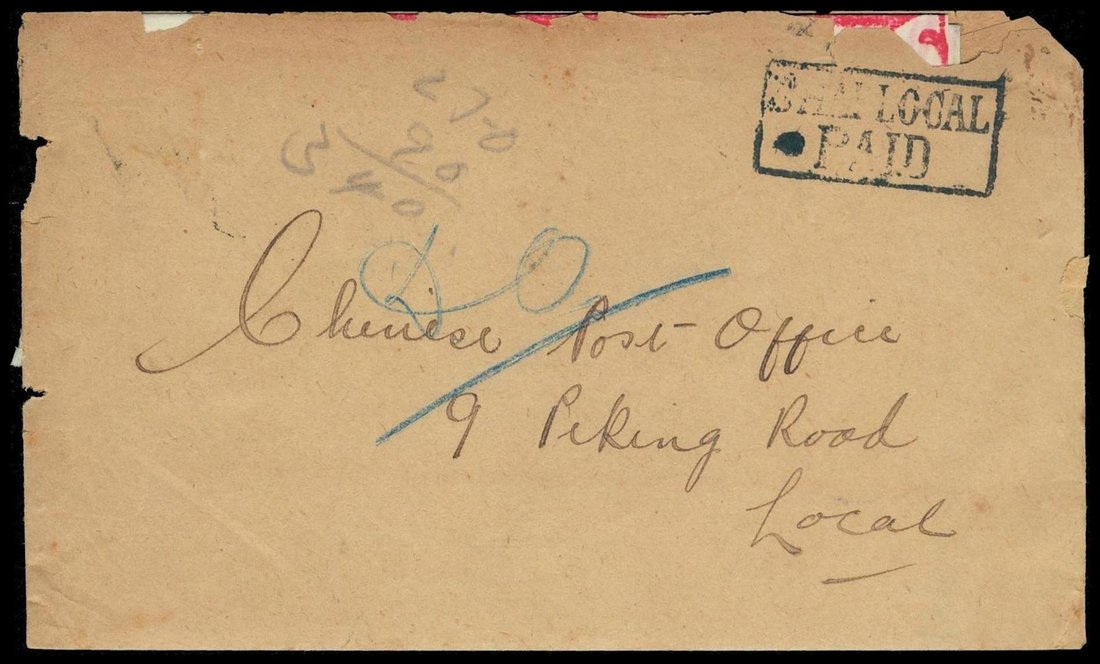 S'HAI LOCAL
PAID
D O
Chinese Post Office
9 Peking Road
Local